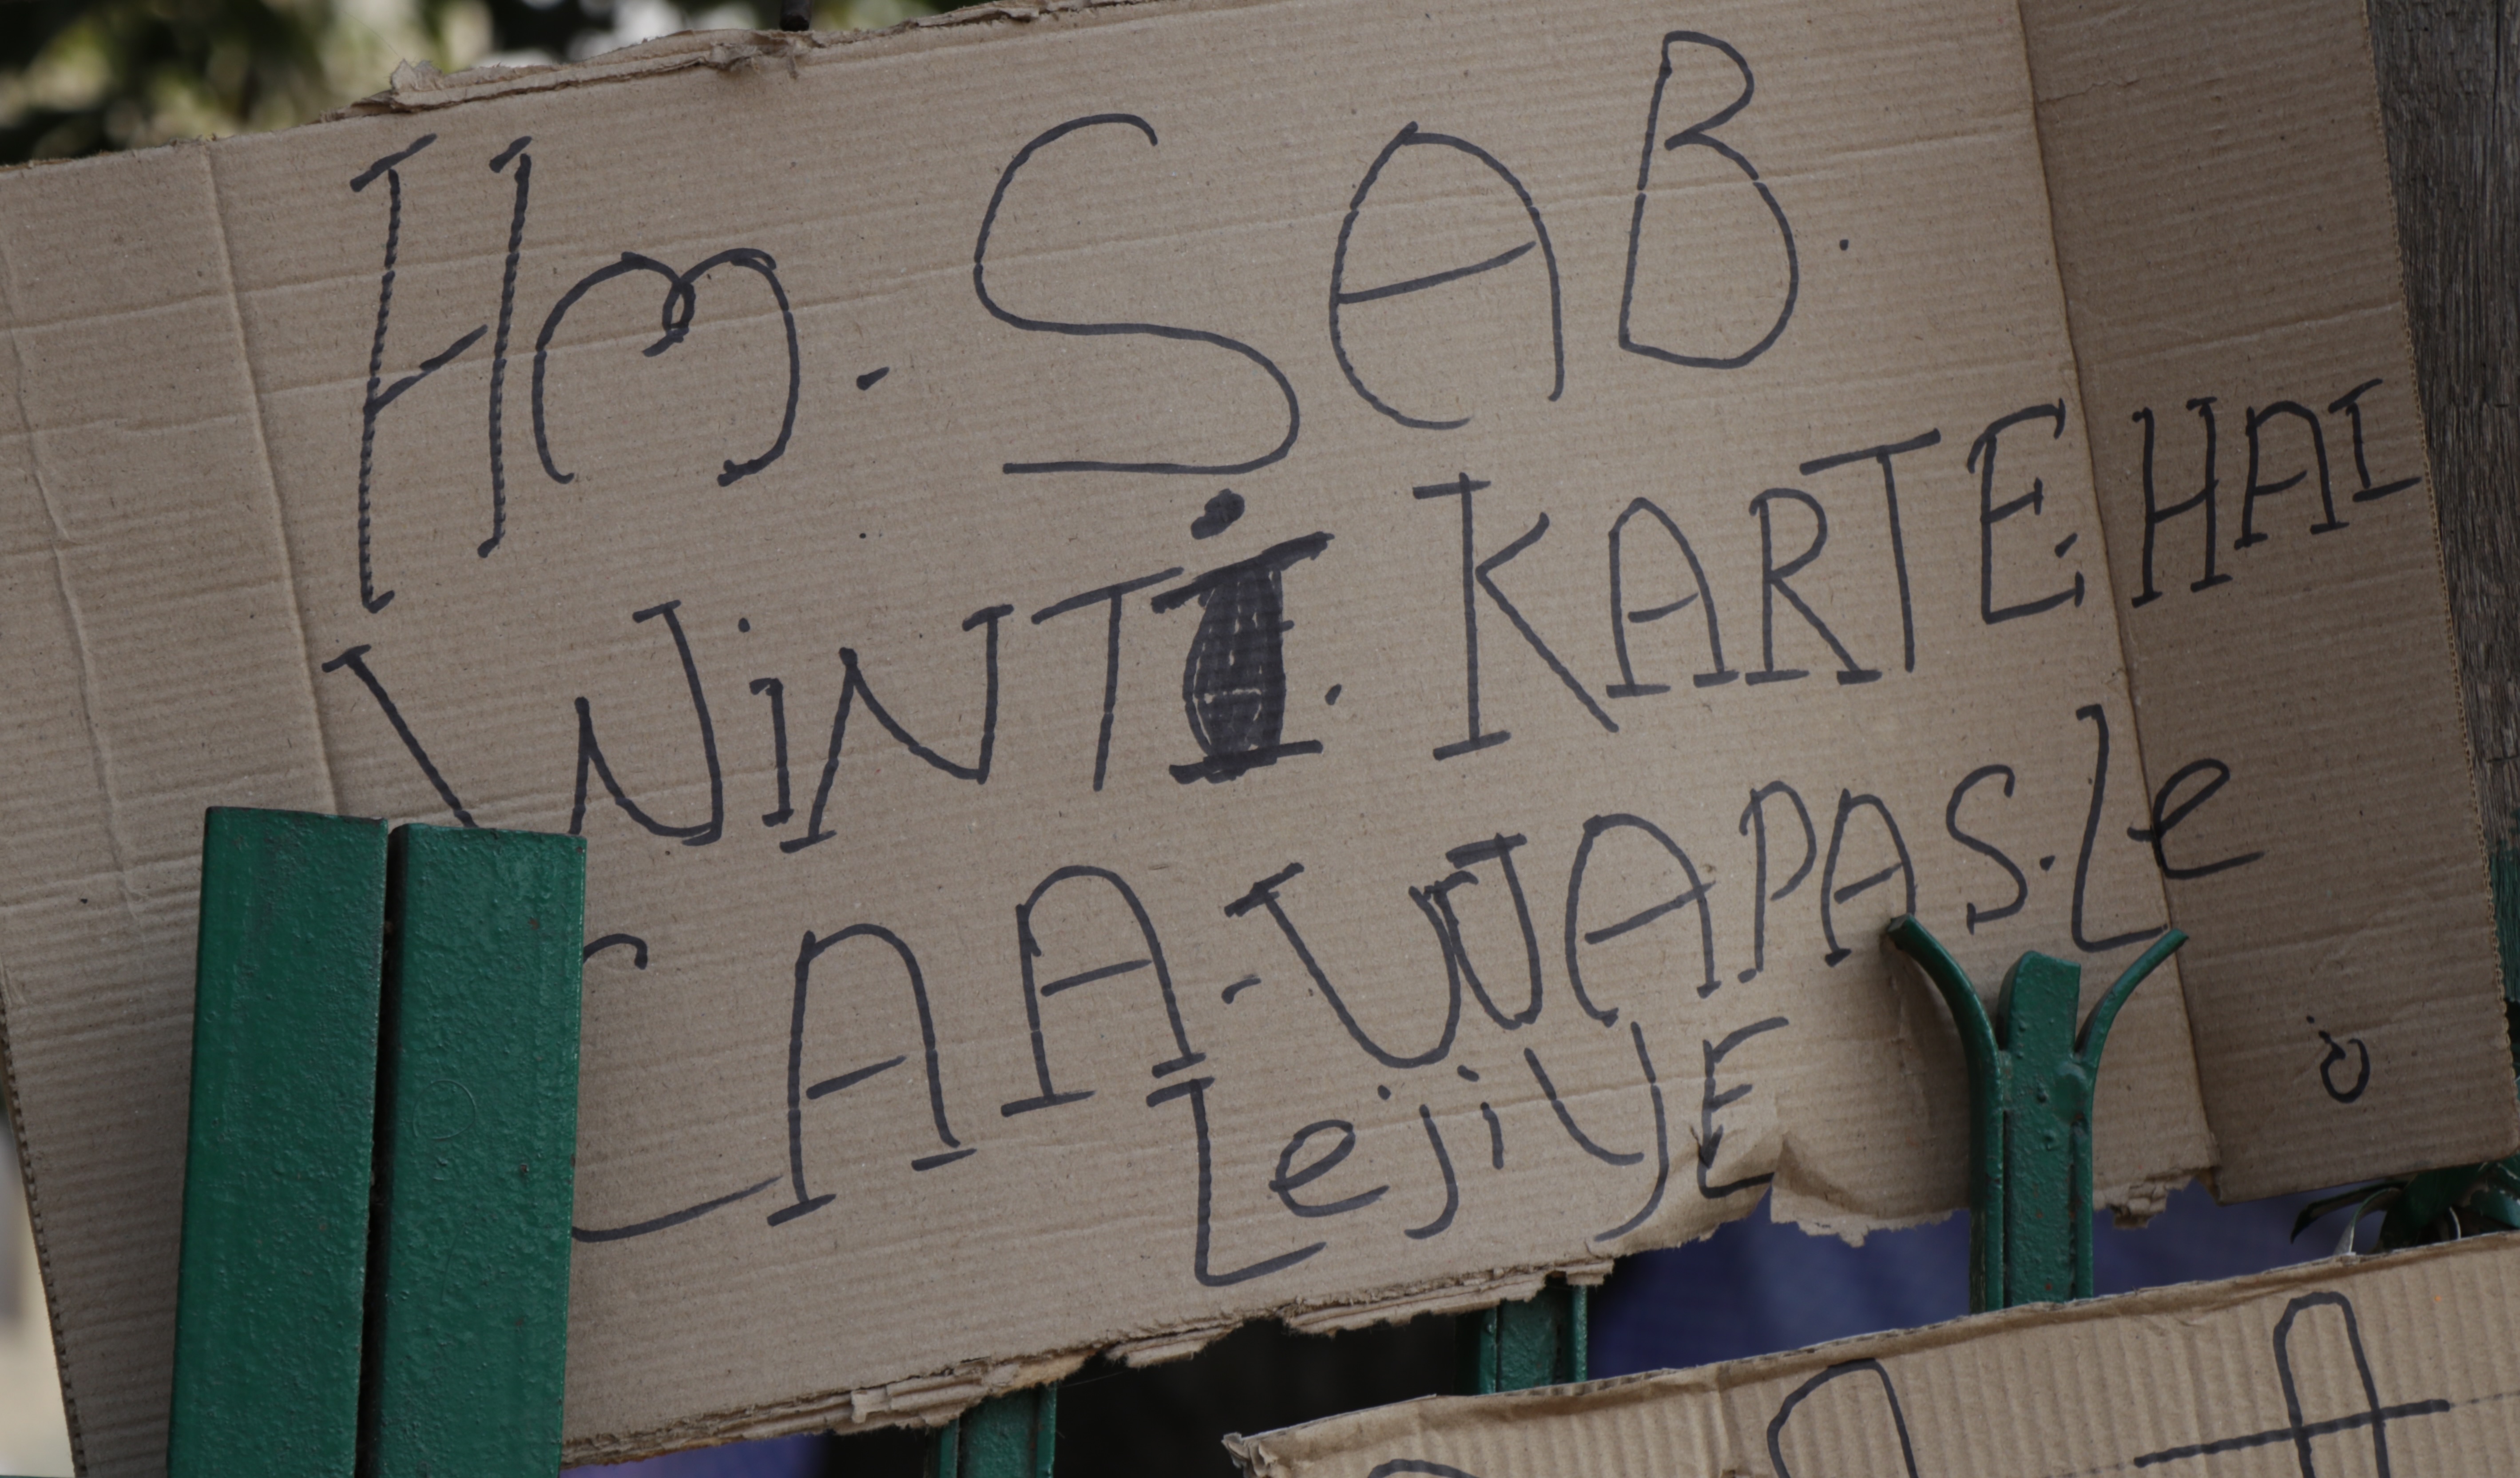 Hm. SAB.
WiNTI. KARTE HAI
CAA-WAPAS.Le
LejiYE